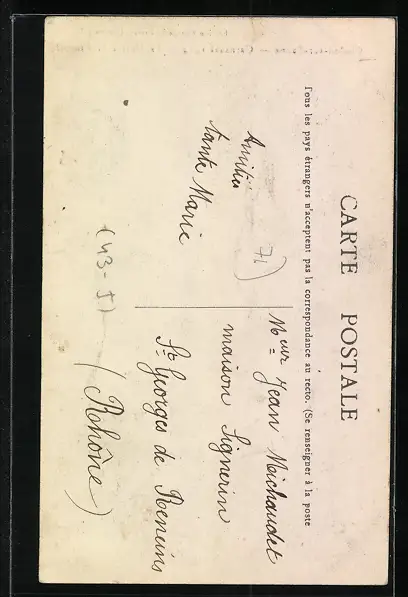 CARTE POSTALE
Tous les pays étrangers n'acceptent pas la correspondance au recto. (Se renseigner à la poste
Amitiés
tante Marie
71)
(43-5)
Meur Jean Michaudet
maison Signerin
St Georges de Reneins
(Rhône)